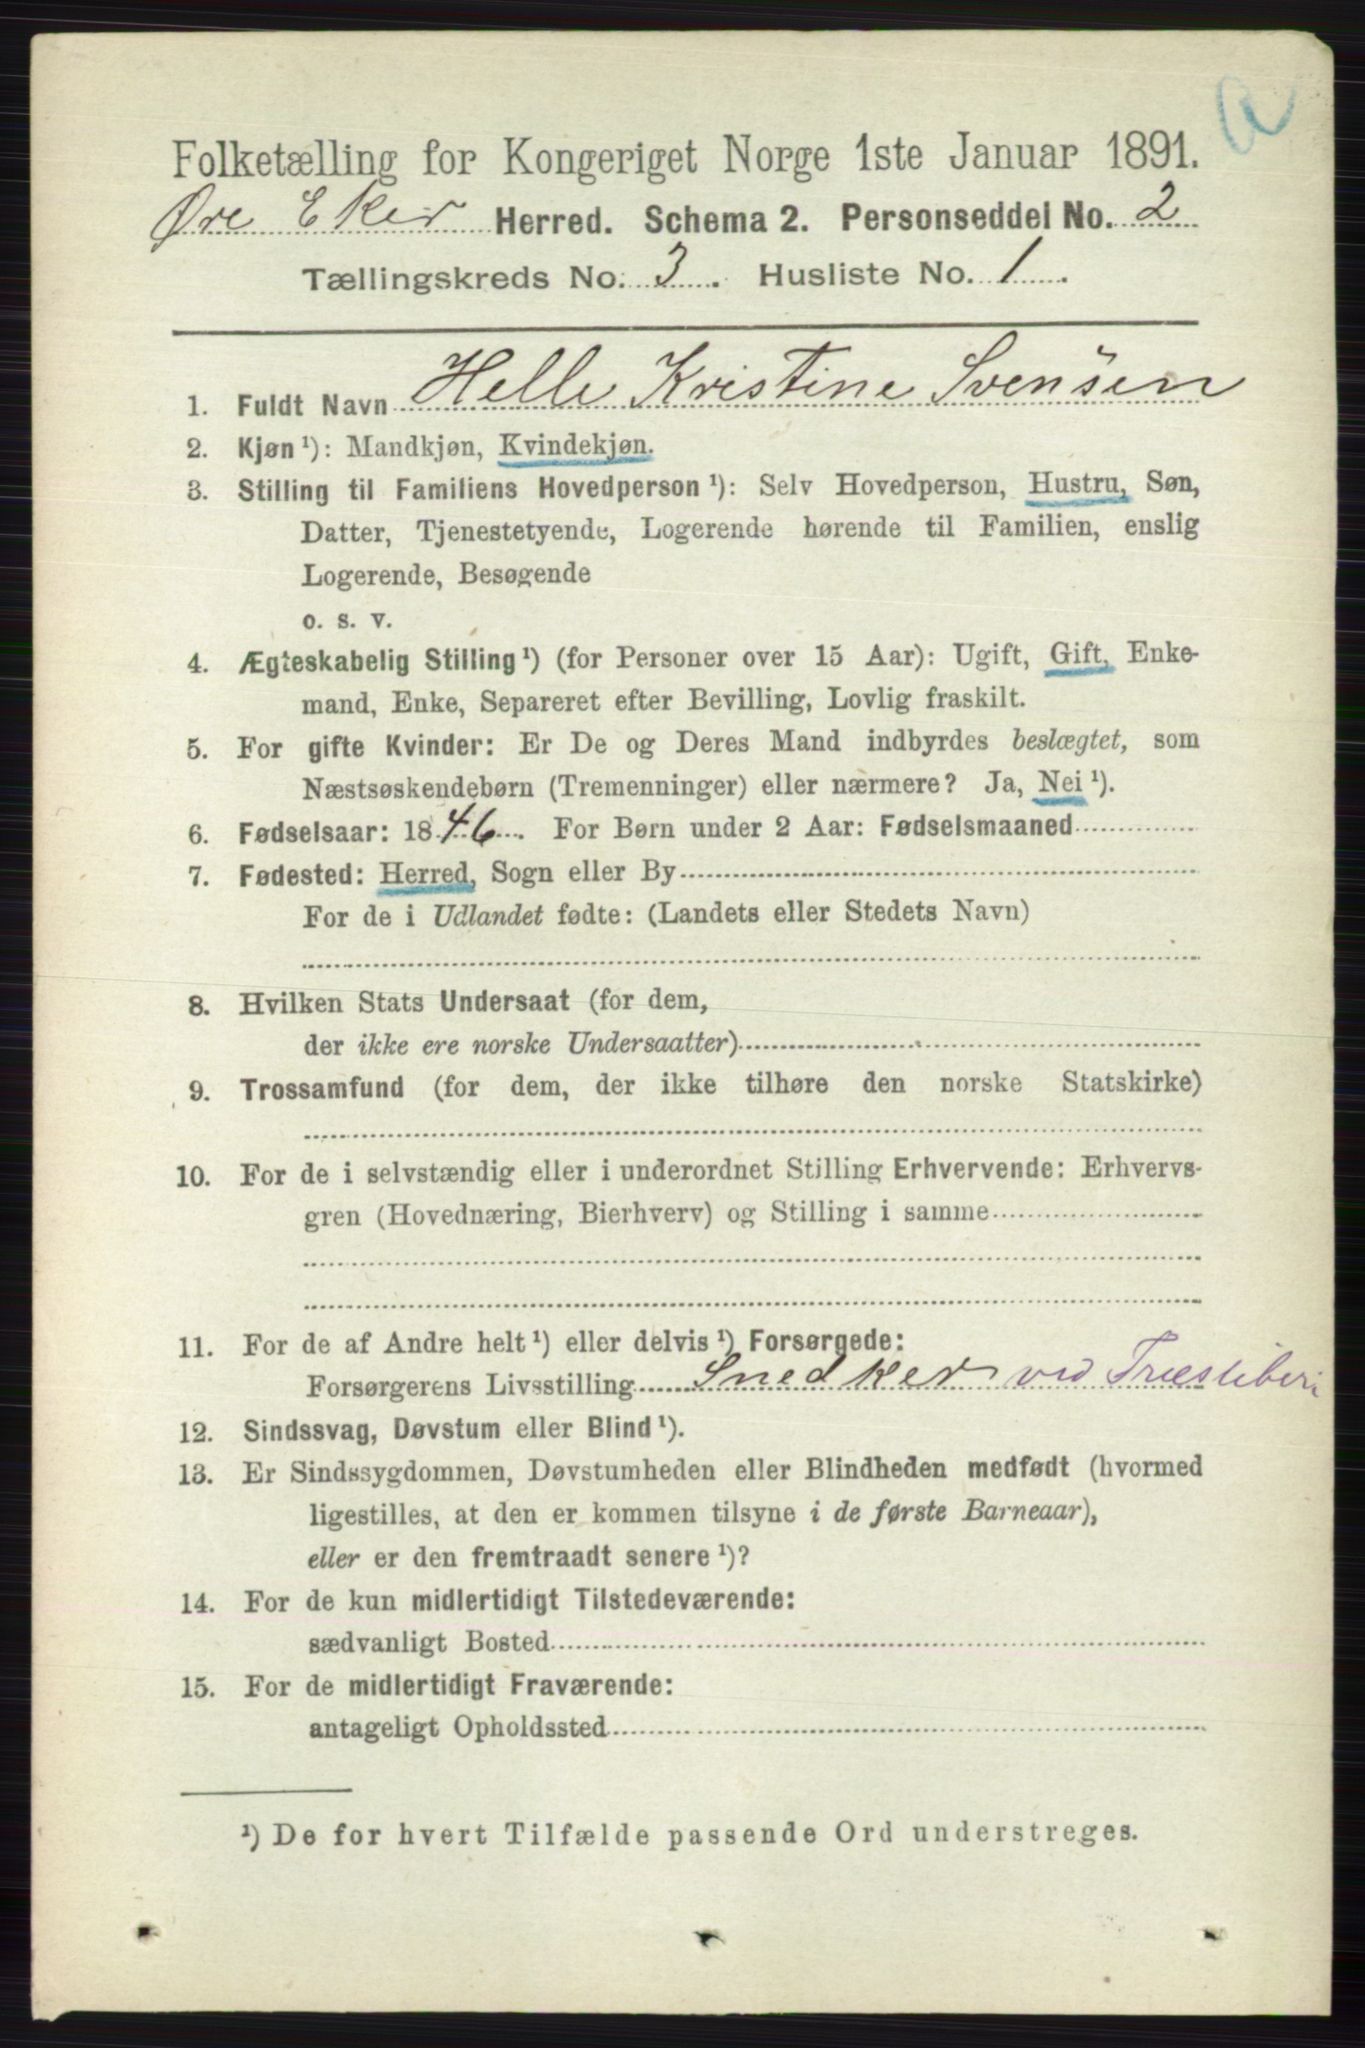 a
Folketælling for Kongeriget Norge 1ste Januar 1891.
Øvre Eker Herred. Schema 2. Personseddel No. 2
Tællingskreds No. 3. Husliste No. 1.
1. Fuldt Navn Helle Kristine Svensen
2. Kjøn ¹): Mandkjøn, Kvindekjøn.
3. Stilling til Familiens Hovedperson ¹): Selv Hovedperson, Hustru, Søn,
Datter, Tjenestetyende, Logerende hørende til Familien, enslig
Logerende, Besøgende
o. s. v.
4. Ægteskabelig Stilling ¹) (for Personer over 15 Aar): Ugift, Gift, Enke-
mand, Enke, Separeret efter Bevilling, Lovlig fraskilt.
5. For gifte Kvinder: Er De og Deres Mand indbyrdes beslægtet, som
Næstsøskendebørn (Tremenninger) eller nærmere? Ja, Nei ¹).
6. Fødselsaar: 1846. For Børn under 2 Aar: Fødselsmaaned
7. Fødested: Herred, Sogn eller By
For de i Udlandet fødte: (Landets eller Stedets Navn)
8. Hvilken Stats Undersaat (for dem,
der ikke ere norske Undersaatter)
9. Trossamfund (for dem, der ikke tilhøre den norske Statskirke)
10. For de i selvstændig eller i underordnet Stilling Erhvervende: Erhvervs-
gren (Hovednæring, Bierhverv) og Stilling i samme
11. For de af Andre helt ¹) eller delvis ¹) Forsørgede:
Forsørgerens Livsstilling Snedker ved
12. Sindssvag, Døvstum eller Blind ¹).
13. Er Sindssygdommen, Døvstumheden eller Blindheden medfødt (hvormed
ligestilles, at den er kommen tilsyne i de første Barneaar),
eller er den fremtraadt senere ¹)?
14. For de kun midlertidigt Tilstedeværende:
sædvanligt Bosted
15. For de midlertidigt Fraværende:
antageligt Opholdssted
¹) De for hvert Tilfælde passende Ord understreges.